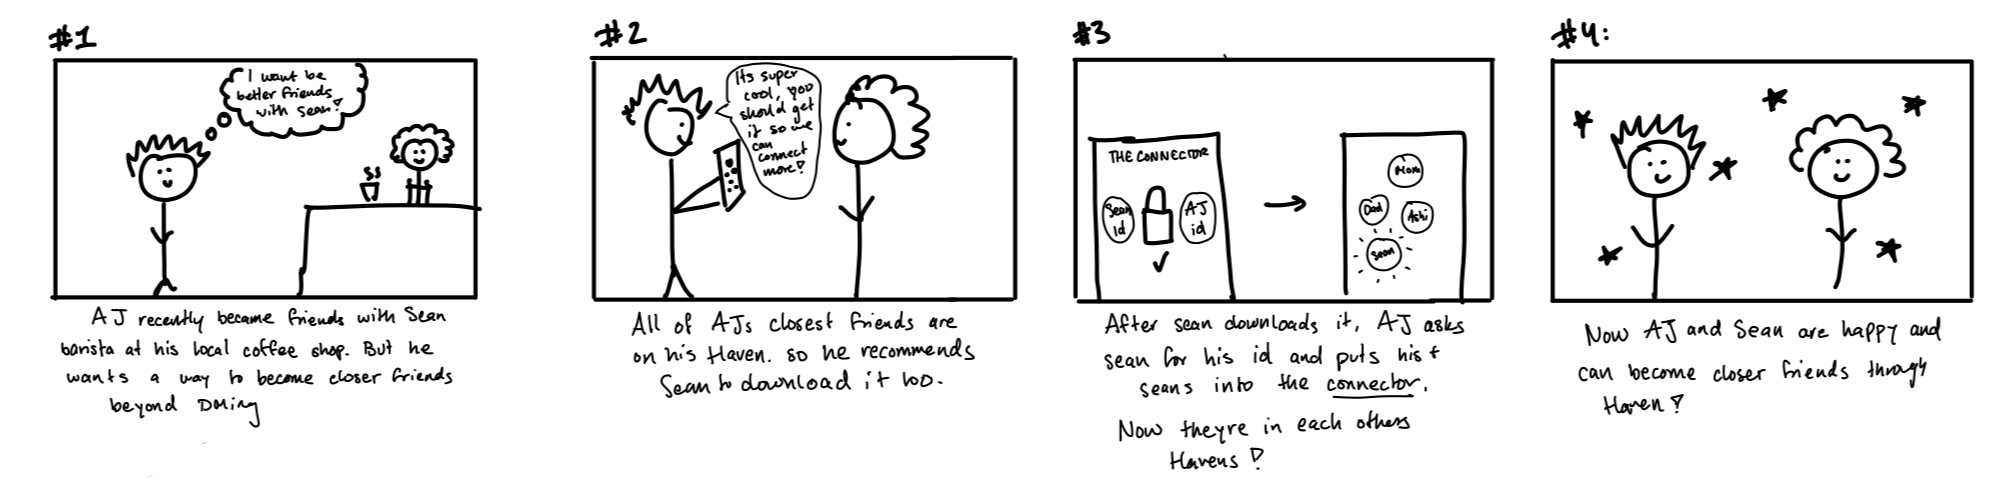 #1
I want be
better friends
with Sean!
AJ recently became friends with Sean
barista at his local coffee shop. But he
wants a way to become closer friends
beyond DMing
#2
Its super
cool, you
should get
it so we
can
connect
more!
All of AJs closest friends are
on his Haven. so he recommends
Sean to download it too.
#3
THE CONNECTOR
Sean
id
AJ
id
Mom
Dad
Ashi
Sean
After sean downloads it, AJ asks
sean for his id and puts his +
seans into the connector.
Now theyre in each others
Havens!
#4:
Now AJ and Sean are happy and
can become closer friends through
Haven!